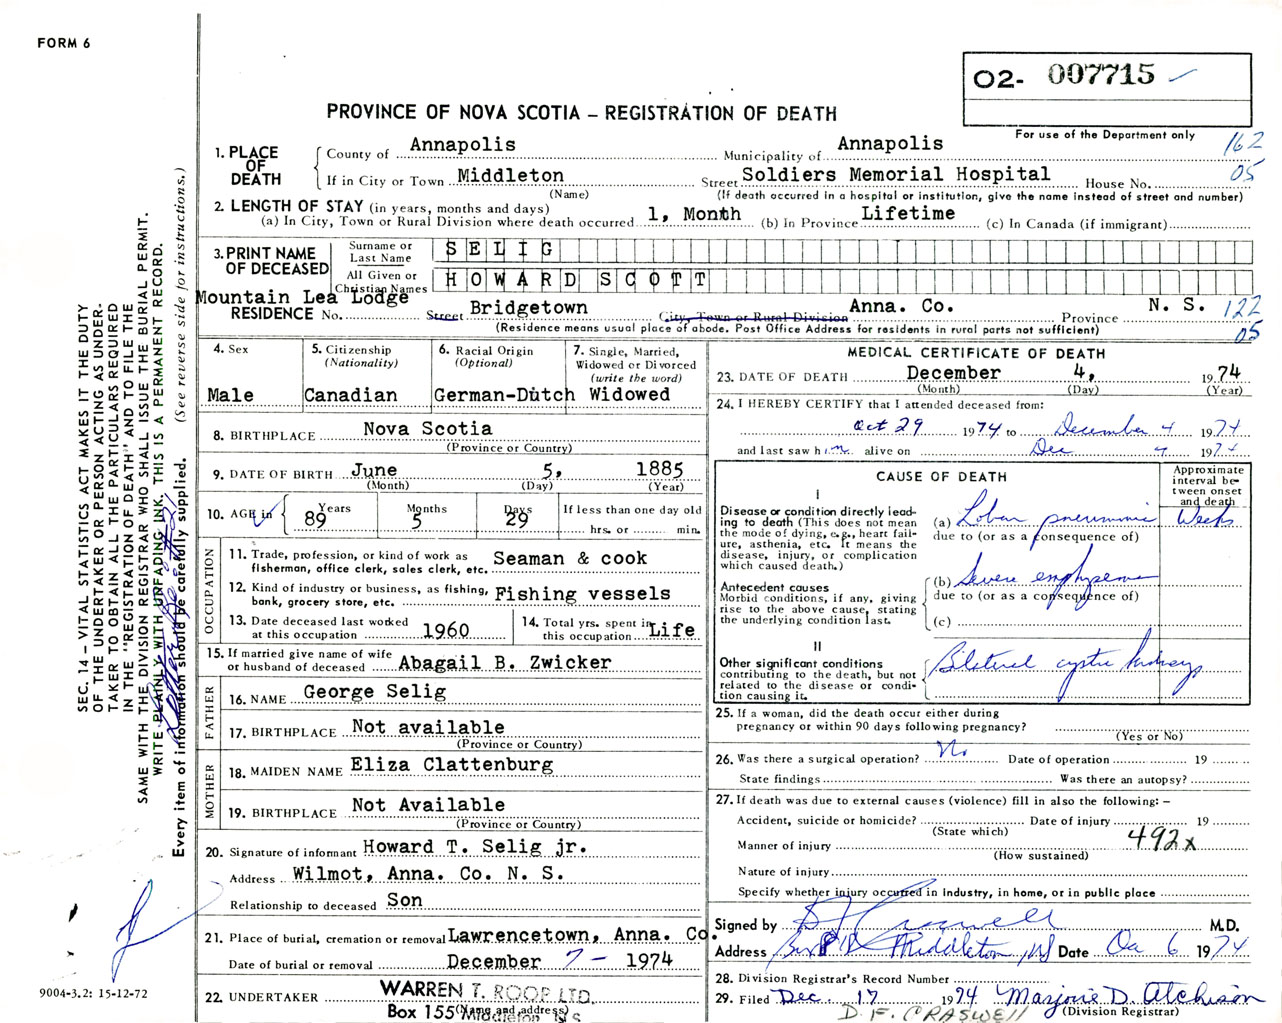 FORM 6
O2- 007715
For use of the Department only
162
05
PROVINCE OF NOVA SCOTIA – REGISTRATION OF DEATH
1. PLACE OF DEATH
County of Annapolis Municipality of Annapolis
If in City or Town Middleton Street Soldiers Memorial Hospital House No.
(Name) (If death occurred in a hospital or institution, give the name instead of street and number)
2. LENGTH OF STAY (in years, months and days)
(a) In City, Town or Rural Division where death occurred 1, Month (b) In Province Lifetime (c) In Canada (if immigrant)
3. PRINT NAME OF DECEASED
Surname or Last Name SELIG
All Given or Christian Names HOWARD SCOTT
Mountain Lea Lodge
RESIDENCE No. Street Bridgetown City, Town or Rural Division Anna. Co. Province N. S. 122
05
(Residence means usual place of abode. Post Office Address for residents in rural parts not sufficient)
4. Sex
Male
5. Citizenship
(Nationality)
Canadian
6. Racial Origin
(Optional)
German-Dutch
7. Single, Married,
Widowed or Divorced
(write the word)
Widowed
8. BIRTHPLACE Nova Scotia
(Province or Country)
9. DATE OF BIRTH June 5, 1885
(Month) (Day) (Year)
10. AGE in
Years Months Days If less than one day old
89 5 29 hrs. or min.
OCCUPATION
11. Trade, profession, or kind of work as
fisherman, office clerk, sales clerk, etc. Seaman & cook
12. Kind of industry or business, as fishing,
bank, grocery store, etc. Fishing vessels
13. Date deceased last worked
at this occupation 1960
14. Total yrs. spent in
this occupation Life
15. If married give name of wife
or husband of deceased Abagail B. Zwicker
FATHER
16. NAME George Selig
17. BIRTHPLACE Not available
(Province or Country)
MOTHER
18. MAIDEN NAME Eliza Clattenburg
19. BIRTHPLACE Not Available
(Province or Country)
20. Signature of informant Howard T. Selig jr.
Address Wilmot, Anna. Co. N. S.
Relationship to deceased Son
21. Place of burial, cremation or removal Lawrencetown, Anna. Co.
Date of burial or removal December 7 – 1974
22. UNDERTAKER WARREN T. ROOP LTD.
Box 155 (Name and address)
Middleton N S
MEDICAL CERTIFICATE OF DEATH
23. DATE OF DEATH December 4, 1974
(Month) (Day) (Year)
24. I HEREBY CERTIFY that I attended deceased from:
Oct 29 1974 to December 4 1974
and last saw him alive on Dec 4 1974
CAUSE OF DEATH
Approximate
interval be-
tween onset
and death
I
Disease or condition directly lead-
ing to death (This does not mean
the mode of dying, e.g., heart fail-
ure, asthenia, etc. It means the
disease, injury, or complication
which caused death.)
(a) Lobar pneumonia Weeks
due to (or as a consequence of)
Antecedent causes
Morbid conditions, if any, giving
rise to the above cause, stating
the underlying condition last.
(b) Severe emphysema
due to (or as a consequence of)
(c)
II
Other significant conditions
contributing to the death, but not
related to the disease or condi-
tion causing it.
Bilateral cystic kidneys
25. If a woman, did the death occur either during
pregnancy or within 90 days following pregnancy?
(Yes or No)
26. Was there a surgical operation? No Date of operation 19
State findings Was there an autopsy?
27. If death was due to external causes (violence) fill in also the following: –
Accident, suicide or homicide? Date of injury 19
(State which)
492x
Manner of injury
(How sustained)
Nature of injury
Specify whether injury occurred in industry, in home, or in public place
Signed by Craswell M.D.
Address Middleton, NS Date 6 1974
28. Division Registrar's Record Number
29. Filed Dec. 17 1974 Marjorie D. Atchison
(Division Registrar)
D. F. CRASWELL
SEC. 14 – VITAL STATISTICS ACT MAKES IT THE DUTY
OF THE UNDERTAKER OR PERSON ACTING AS UNDER-
TAKER TO OBTAIN ALL THE PARTICULARS REQUIRED
IN THE "REGISTRATION OF DEATH" AND TO FILE THE
SAME WITH THE DIVISION REGISTRAR WHO SHALL ISSUE THE BURIAL PERMIT.
WRITE PLAINLY WITH UNFADING INK. THIS IS A PERMANENT RECORD.
Every item of information should be carefully supplied. (See reverse side for instructions.)
9004-3.2: 15-12-72